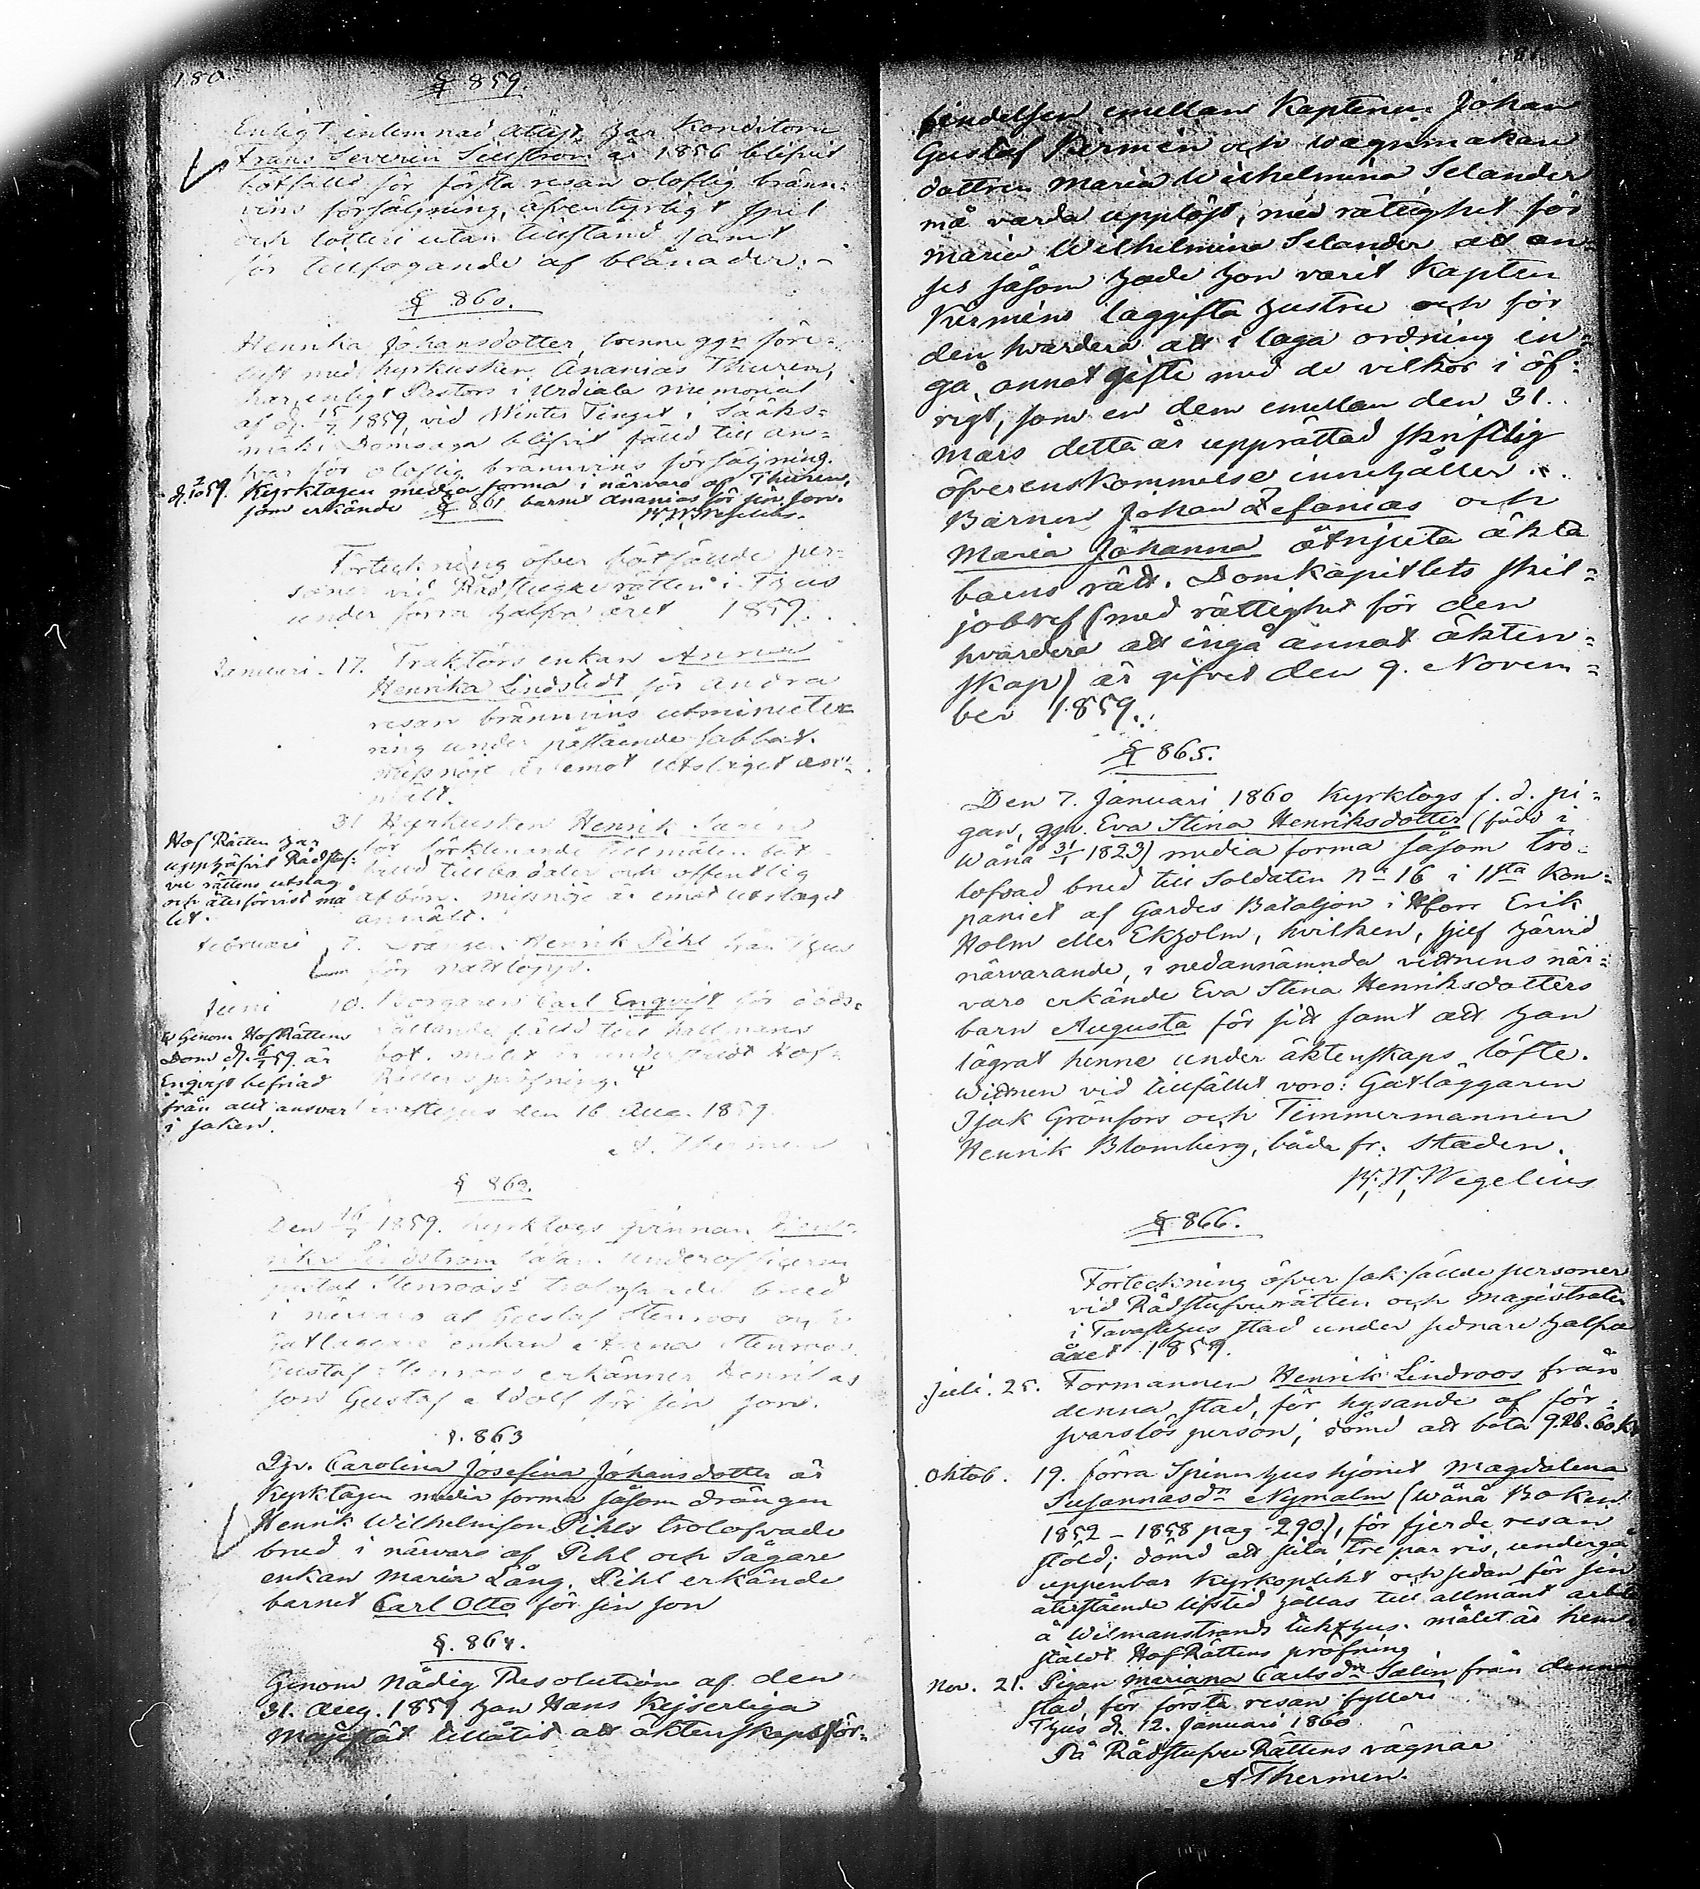 180.
§ 859.
Enligt inlemnad attest har Konditorn
Frans Severin Sillström år 1856 blifvit
bötfälld för första resan oloflig bränn-
vins försäljning, äfventyrligt spel
och lotteri utan tillstånd samt
för tillfogande af blånader.
§ 860.
Henrika Johansdotter, tvenne ggr före-
med hyrkusken Ananias Thuren,
har enligt Pastors i Urdiala memorial
af d. 1859, vid Winter Tinget i Sääks-
mäki Domsaga blifvit fälld till an-
svar för oloflig brännvins försäljning.
d. 59. Kyrktagen media forma i närvaro af Thuren,
som erkände barnet Ananias för sin son.
§ 861
Wegelius.
Förteckning öfver bötfällde per-
soner vid Rådstugurätten i Thus
under förra halfva året 1859.
Januari 17. Traktörs enkan Anna
Henrika Lindstedt för andra
resan brännvins utminute-
ring under påstående sabbat.
missnöje är emot utslaget an-
mält.
31 Hyrkusken Henrik
för förklenande tillmälen böt
fälld till daler och offentlig
afbön. missnöje är emot utslaget
anmält.
Hof Rätten har
upphäfvit Rådstuf-
vu rättens utslag
och återförvist må
let.
Februari 7. Drängen Henrik Pihl från Thus
för
Juni 10. Borgaren Carl Enqvist för
fälld till
bot. målet är underställdt Hof-
Rättens pröfning.
Genom HofRättens
Dom d. 59 är
Enqvist befriad
från allt ansvar
i saken.
Tavastehus den 16. Aug. 1859.
A. Thermen
§ 862.
Den 1859. kyrktogs qvinnan Hen-
rika Lindström såsom underofficeren
Gustaf Stenroos's trolofvade brud
i närvaro af Gustaf Stenroos och
enkan Anna Stenroos.
Gustaf Stenroos erkänner Henrikas
son Gustaf Adolf för sin son.
§. 863
Qv. Carolina Josefina Johansdotter är
kyrktagen media forma såsom drängen
Henrik Wilhelmsson Pihls trolofvade
brud i närvaro af Pihl och Sågare
enkan Maria Lång. Pihl erkände
barnet Carl Otto för sin son
§. 864.
Genom Nådig Resolution af den
31. Aug. 1859 har Hans Kejserliga
Majestät tillåtit att äktenskapsför-
181.
bindelsen emellan Kaptenen Johan
Gustaf och wagnmakare
dottren Maria Wilhelmina Selander
må varda upplöst, med rätighet för
Maria Wilhelmina Selander att an-
ses såsom hade hon varit Kapten
laggifta hustru och för
den hvardera att i laga ordning in-
gå annat gifte med de vilkor i öf-
rigt, som en dem emellan den 31.
mars detta år upprättad skriftlig
öfverenskommelse innehåller.
Barnen Johan Zefanias och
Maria Johanna åtnjuta äkta
barns rätt. Domkapitlets skil-
jobref (med rättighet för den
hvardera att ingå annat äkten-
skap) är gifvet den 9. Novem-
ber 1859.
§ 865.
Den 7. Januari 1860 Kyrktogs f. d. pi-
gan, qv. Eva Stina Henriksdotter (född i
Wånå 31/1 1823) media forma såsom tro-
lofvad brud till Soldaten No 16 i 1sta Kom-
paniet af Gardes Bataljon i Hfors Erik
Holm eller Ekholm, hvilken, sjelf härvid
närvarande, i nedannämnda vittnens när-
varo erkände Eva Stina Henriksdotters
barn Augusta för sitt samt att han
lägrat henne under äktenskaps löfte.
Witnen vid tillfället voro: Gatläggaren
Isak Grönfors och Timmermannen
Henrik Blomberg, båda fr. staden.
Wegelius
§ 866.
Förteckning öfver sak-fällde personer
vid Rådstufvurätten och Magistraten
i Tavastehus stad under sednare halfva
året 1859.
Juli. 25. Formannen Henrik Lindroos från
denna stad, för hysande af för-
svarslös person, dömd att böta 9. Rb. 60. K.
Oktob. 19. förra Spinnhus hjonet Magdalena
Susannasdr Nymalm (Wånå Boken
1852 - 1858 pag. 290), för fjerde resan
stöld; dömd att slita tre par ris, undergå
uppenbar kyrkoplikt och sedan för sin
återstående lifstid hållas till allmänt arbete
å Wilmanstrands tukthus. målet är hem-
stäldt HofRättens pröfning
Nov. 21. Pigan Mariana Carlsdr Salin från denna
stad, för första resan fylleri
Thus d. 12. Januari 1860
På RådstufvuRättens vägnar
A Thermen.